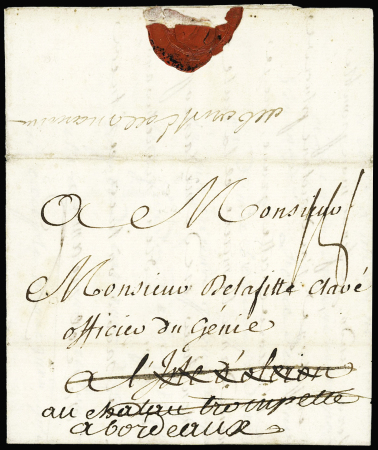 A Monsieur
Monsieur Delafitte Clavé
officier du Génie
a l'Isle d'oleron
au chatau trompette
a bordeaux